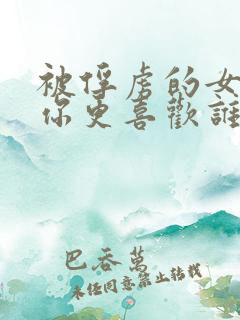 被俘虏的女
你更喜歡誰
巴吞萬
未经同意禁止转载